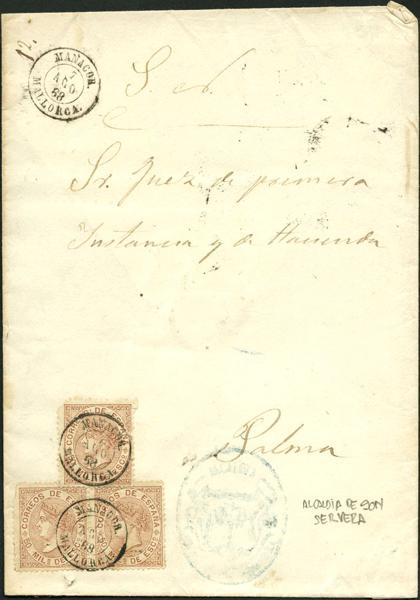 12.
MANACOR.
7
AGO.
68
MALLORCA.
S. N.
Sr. Juez de primera
Instancia y de Hacienda
Palma
CORREOS DE ESPAÑA
MANACOR.
AGO
68
MALLORCA.
CORREOS DE ESPAÑA
DE ESPAÑA
MANACOR.
68
MALLORCA.
MIL.S DE ESC.
DE ESC.
ALCALDIA DE SON
SERVERA